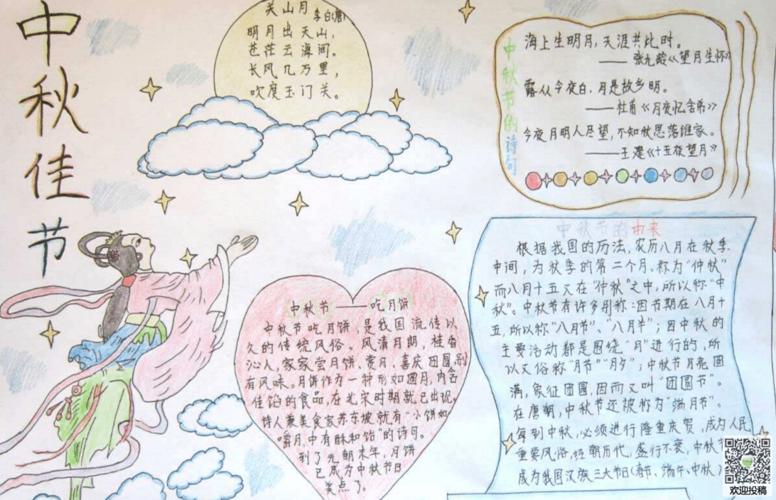 中秋佳节
关山月 李白(唐)
明月出天山,
苍茫云海间。
长风几万里,
吹度玉门关。
中秋节的诗句
海上生明月,天涯共此时。
——张九龄《望月生怀》
露从今夜白,月是故乡明。
——杜甫《月夜忆舍弟》
今夜月明人尽望,不知秋思落谁家。
——王建《十五夜望月》
中秋节——吃月饼
中秋节吃月饼,是我国流传以
久的传统风俗。风清月朗,桂香
沁人,家家尝月饼、赏月,喜庆团圆,别
有风味。月饼作为一种形如圆月,内含
佳馅的食品,在北宋时期就已出现。
诗人兼美食家苏东坡就有“小饼如
嚼月,中有酥和饴”的诗句。
到了元朝末年,月饼
已成为中秋节日
点了。
中秋节的由来
根据我国的历法,农历八月在秋季
中间,为秋季的第二个月,称为“仲秋”
而八月十五又在“仲秋”之中,所以称“中
秋”。中秋节有许多别称:因节期在八月十
五,所以称“八月节”、“八月半”;因中秋的
主要活动都是围绕“月”进行的,所
以又俗称“月节”“月夕”;中秋节月亮圆
满,象征团圆,因而又叫“团圆节”。
在唐朝,中秋节还被称为“端月节”。
每到中秋,必须进行隆重庆贺,成为人民
重要风俗,经朝历代,盛行不衰,中秋节
成为我国汉族三大节日(春节、端午、中秋)
欢迎投稿